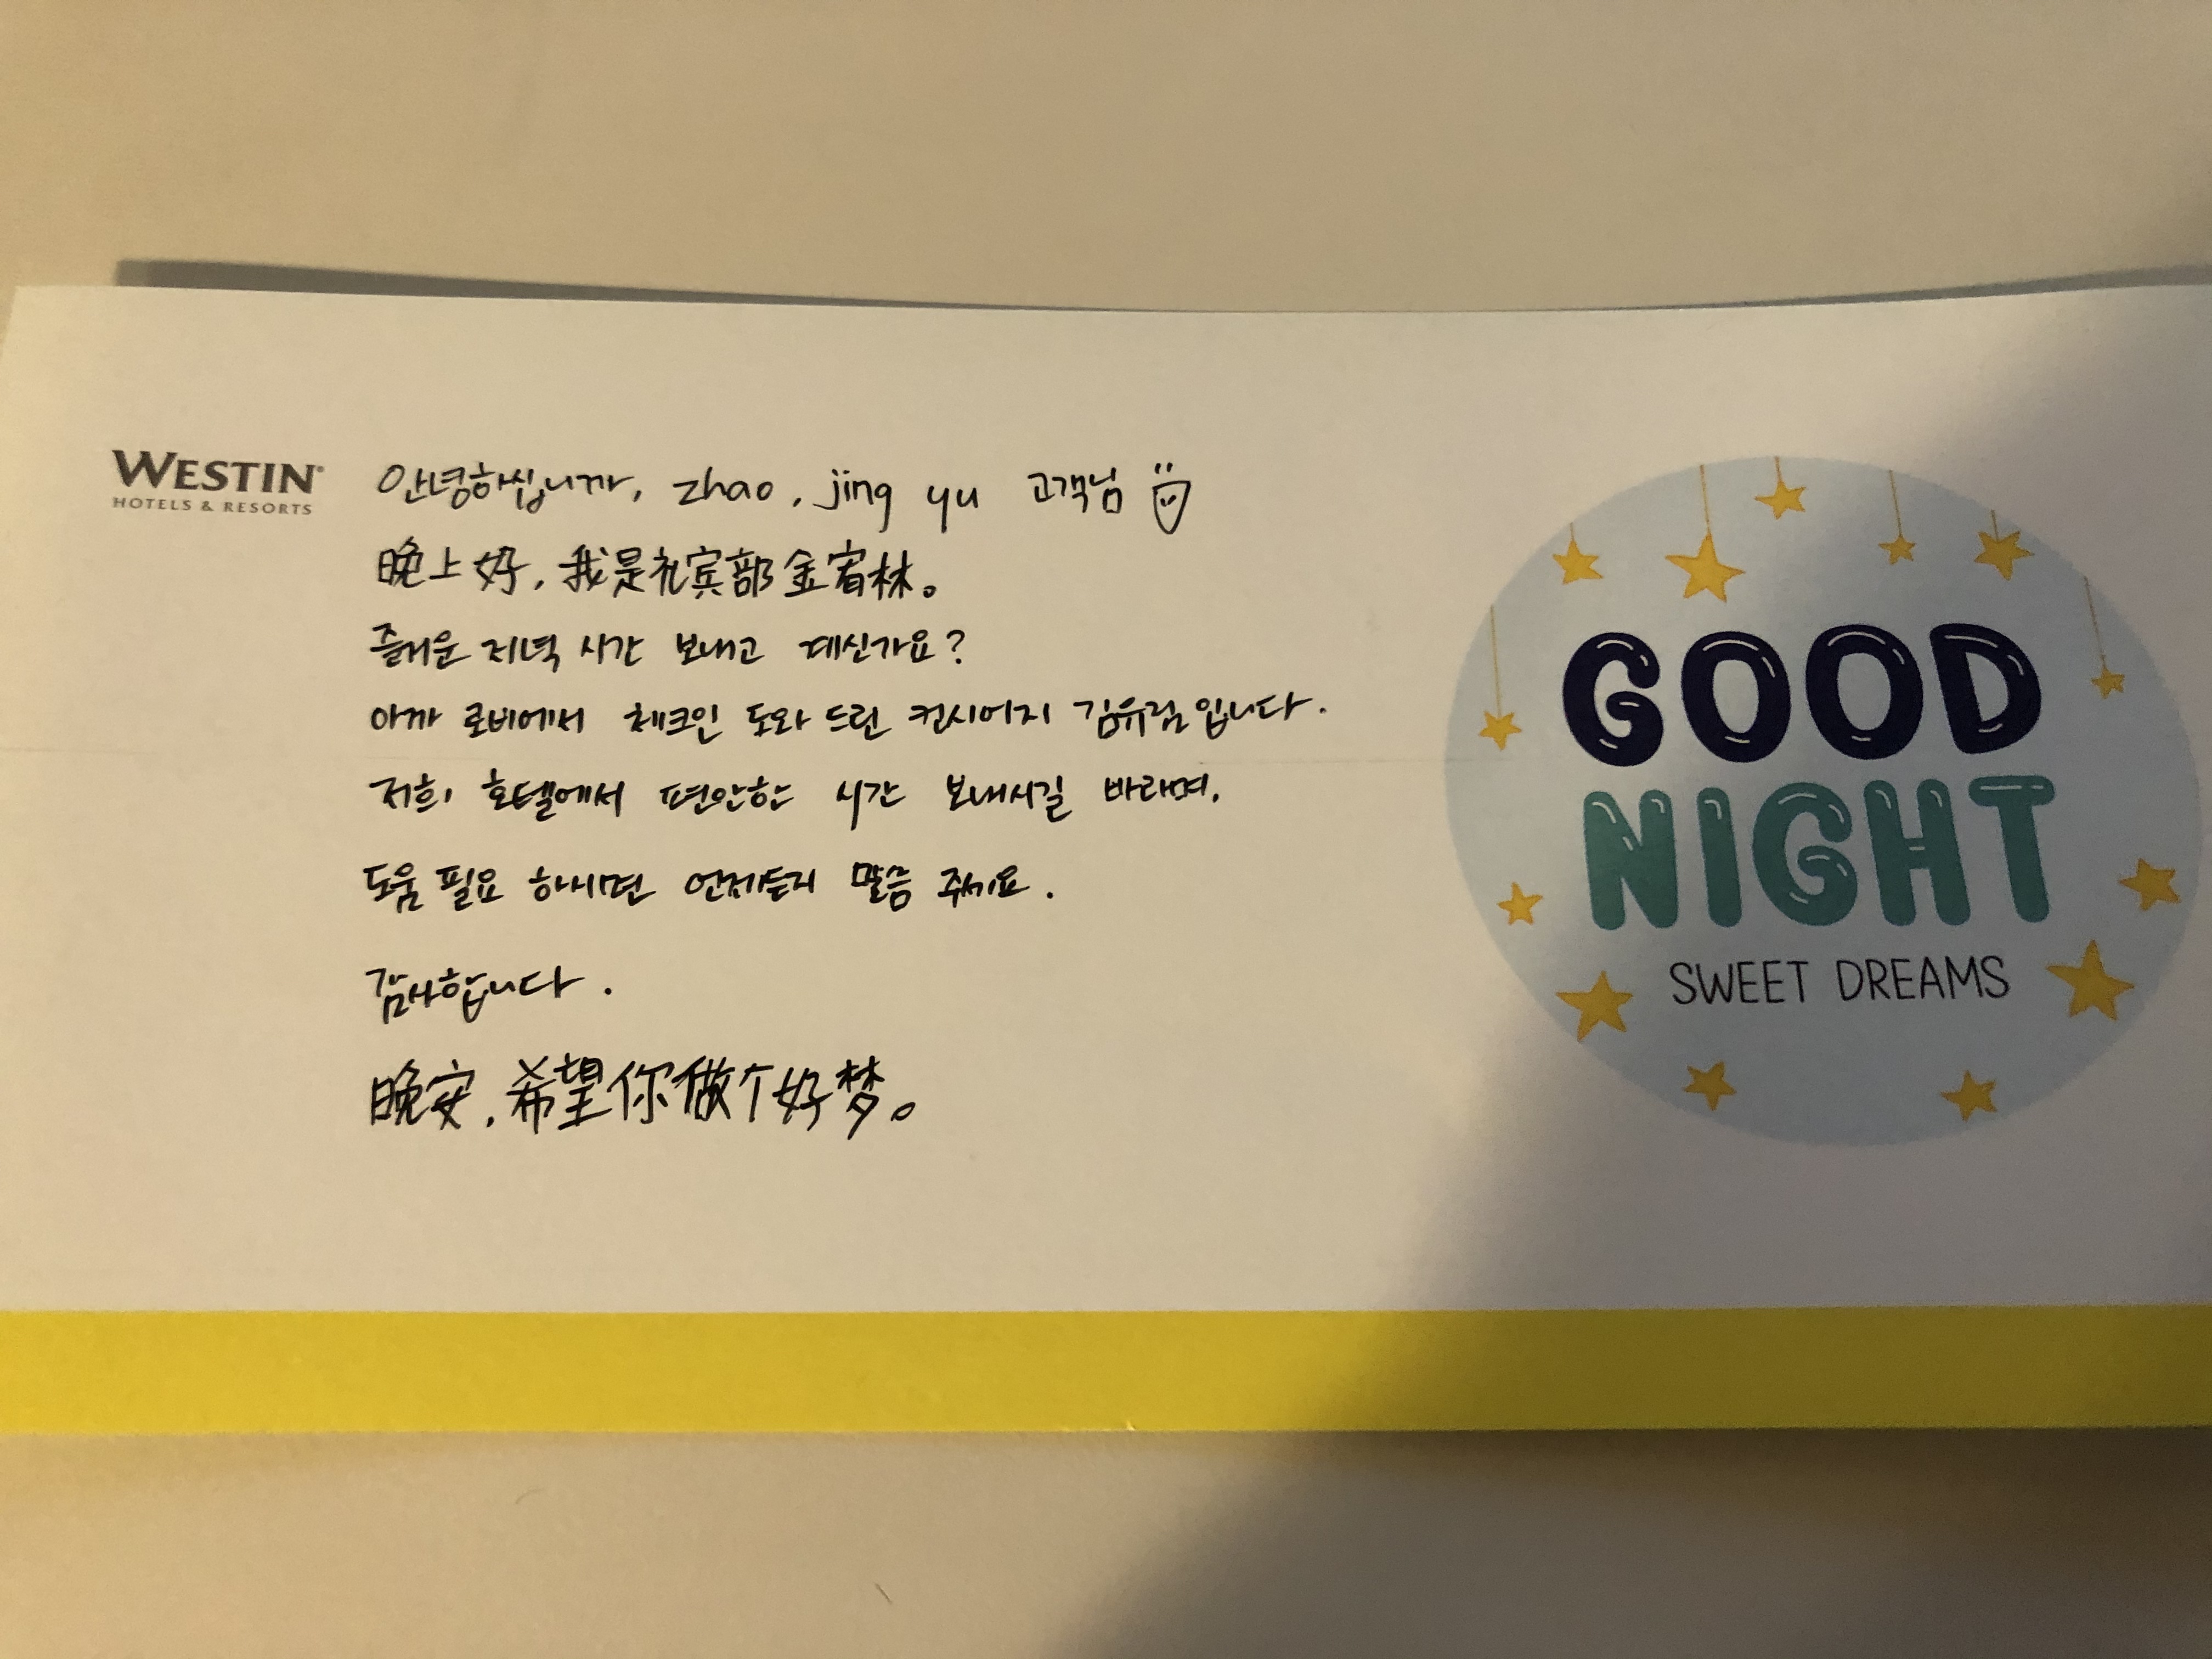 WESTIN®
HOTELS & RESORTS
안녕하십니까, zhao, jing yu 고객님
晚上好, 我是礼宾部金宥林。
즐거운 저녁 시간 보내고 계신가요?
아까 로비에서 체크인 도와 드린 컨시어지 김유림입니다.
저희 호텔에서 편안한 시간 보내시길 바라며,
도움 필요 하시면 언제든지 말씀 주세요.
감사합니다.
晚安, 希望你做个好梦。
GOOD
NIGHT
SWEET DREAMS